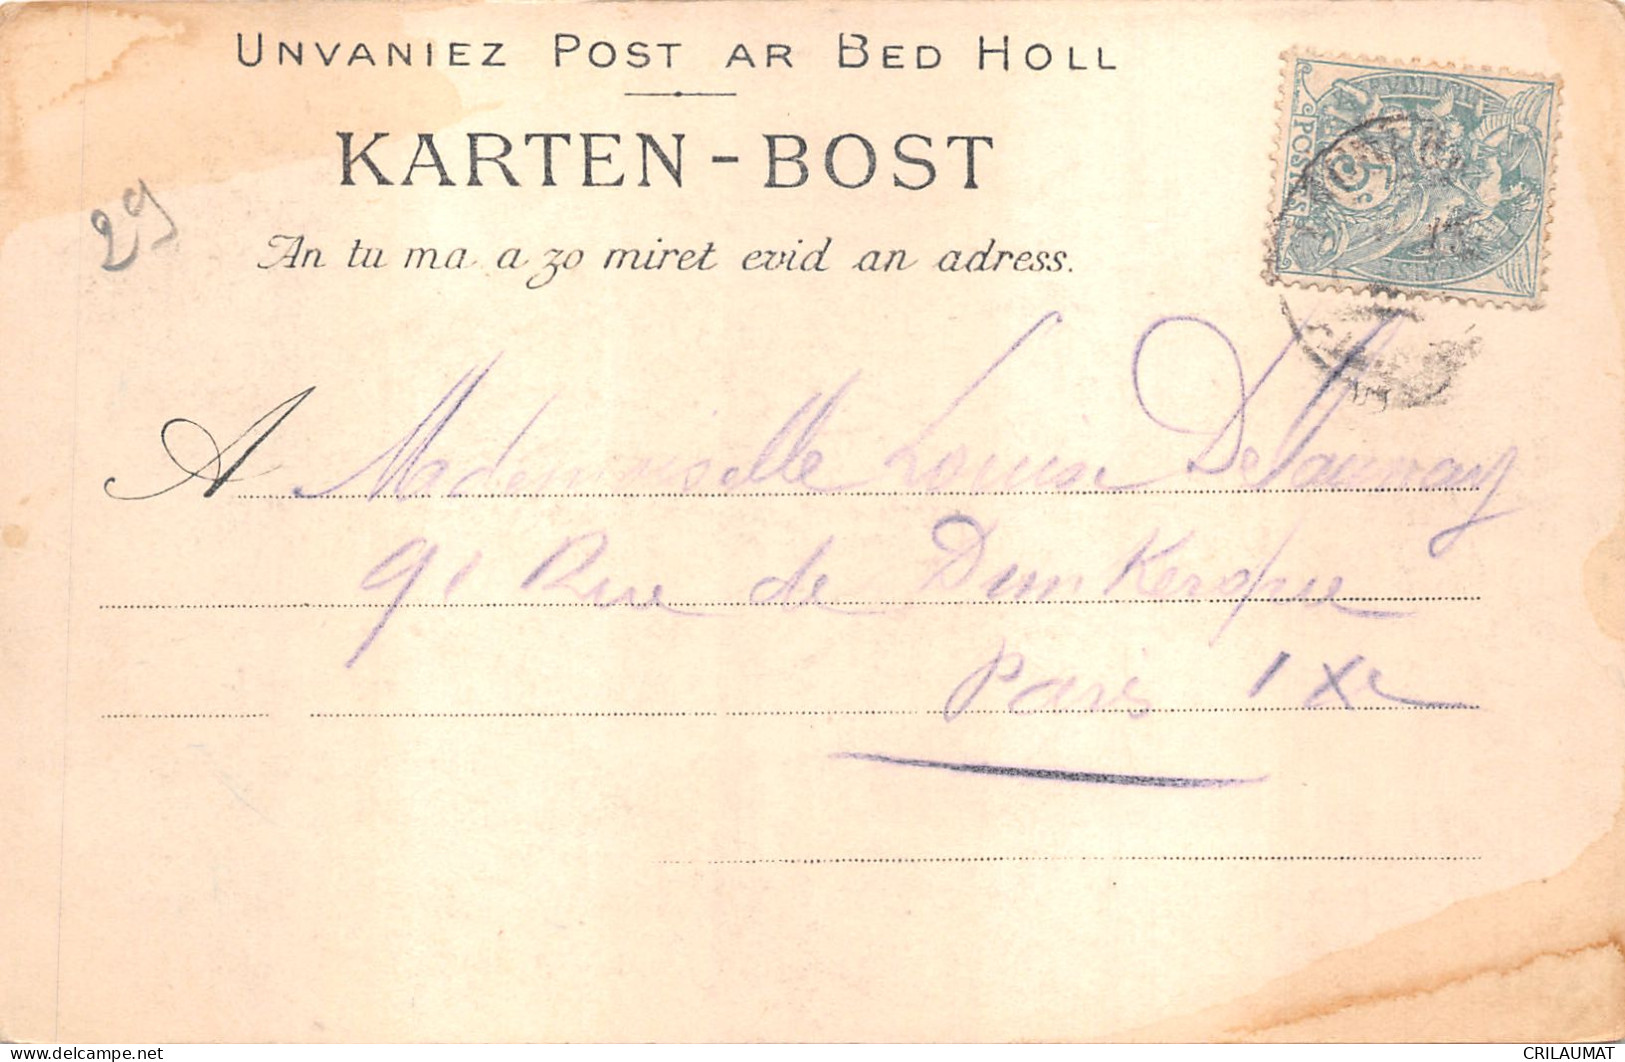 UNVANIEZ POST AR BED HOLL
KARTEN-BOST
An tu ma a zo miret evid an adress.
29
POSTES
5c
A Mademoiselle Louise Delaunay
91 Rue de Dunkerque
Paris IXe
CRILAUMAT